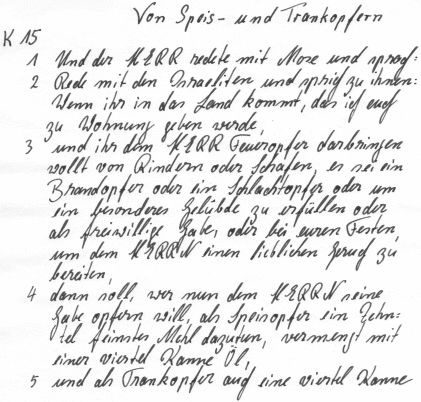 Von Speis- und Trankopfern
K 15
1 Und der HERR redete mit Mose und sprach:
2 Rede mit den Israeliten und sprich zu ihnen:
Wenn ihr in das Land kommt, das ich euch
zu Wohnung geben werde,
3 und ihr dem HERR Feueropfer darbringen
wollt von Rindern oder Schafen, es sei ein
Brandopfer oder ein Schlachtopfer oder um
ein besonderes Gelübde zu erfüllen oder
als freiwillige Gabe, oder bei euren Festen,
um dem HERRN einen lieblichen Geruch zu
bereiten,
4 dann soll, wer nun dem HERRN seine
Gabe opfern will, als Speisopfer ein Zehn-
tel feinstes Mehl dazutun, vermengt mit
einer viertel Kanne Öl,
5 und als Trankopfer auch eine viertel Kanne